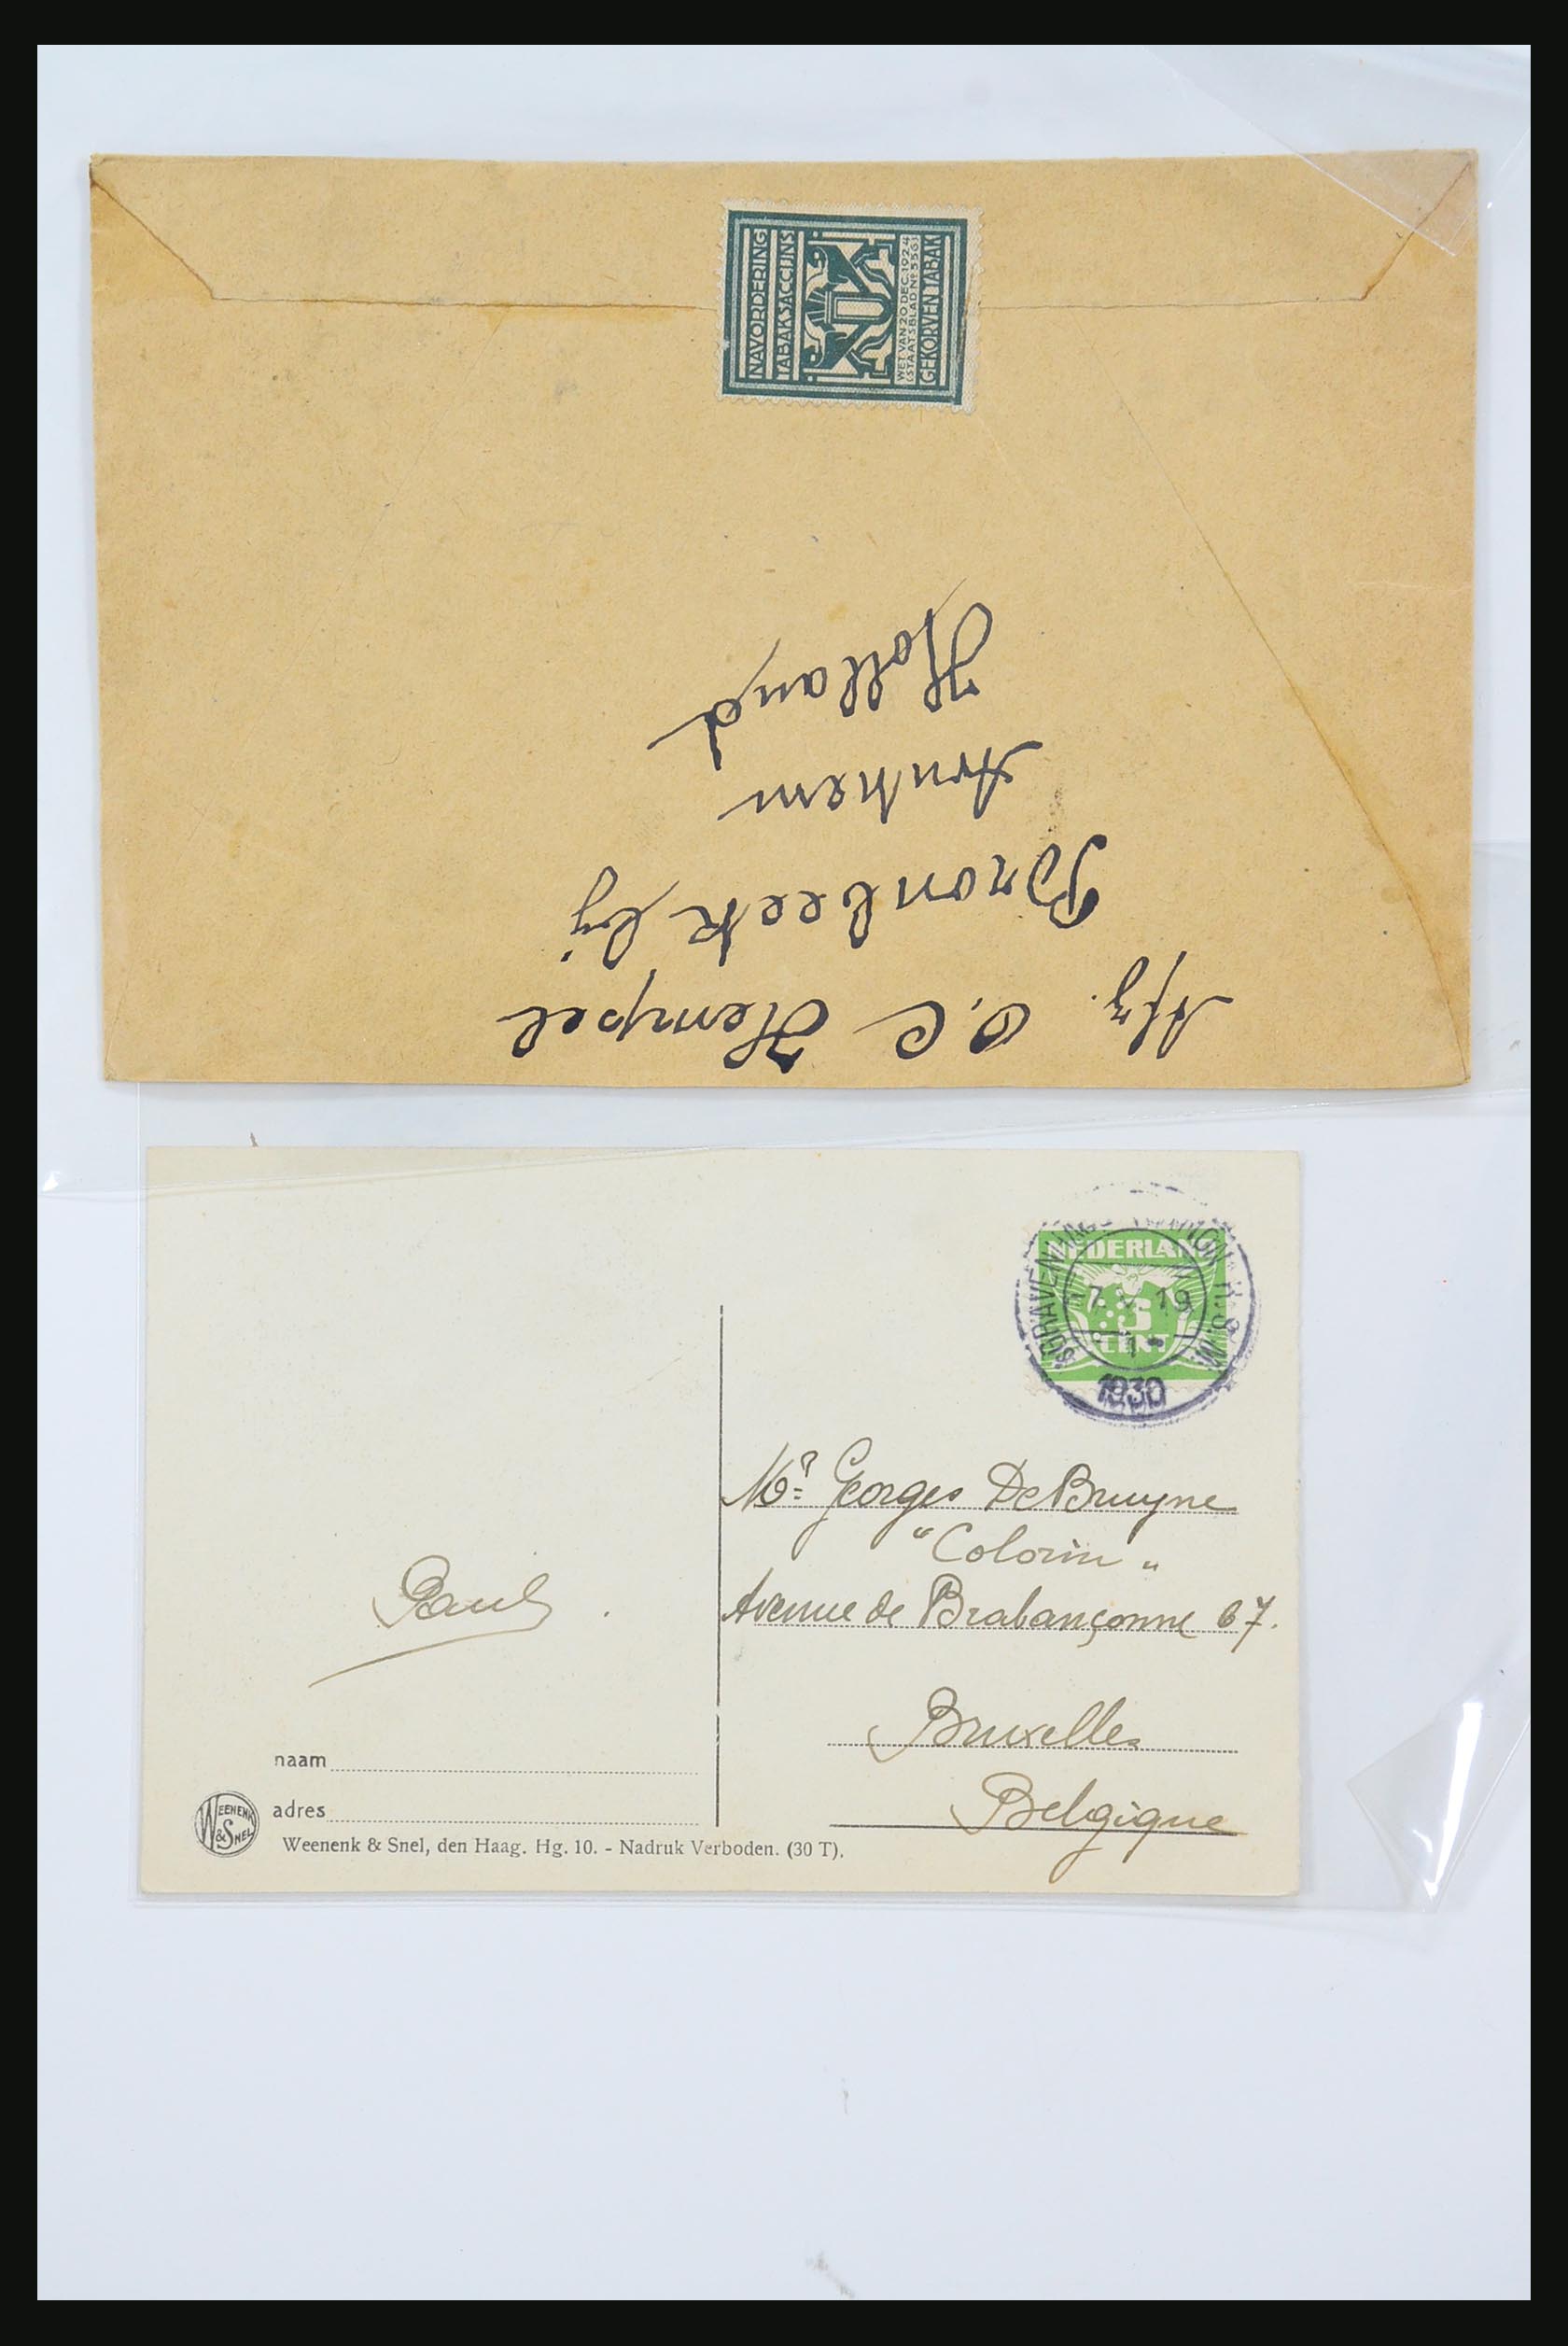 NAVORDERING
TABAKSACCIJNS
WET VAN 20 DEC. 1924
(STAATSBLAD Nº 556)
GEKORVEN TABAK
Afz. O.C Hempel
Bronbeek bij
Arnhem
Holland
'SGRAVENHAGE H.S.M.
NEDERLAND
7.V 19
3
CENT
1
1930
Mr Georges De Bruyne
"Colorin"
Avenue de Brabançonne 67.
Bruxelles
Belgique
Paul.
naam
adres
WEENENK
& SNEL
Weenenk & Snel, den Haag. Hg. 10. - Nadruk Verboden. (30 T).